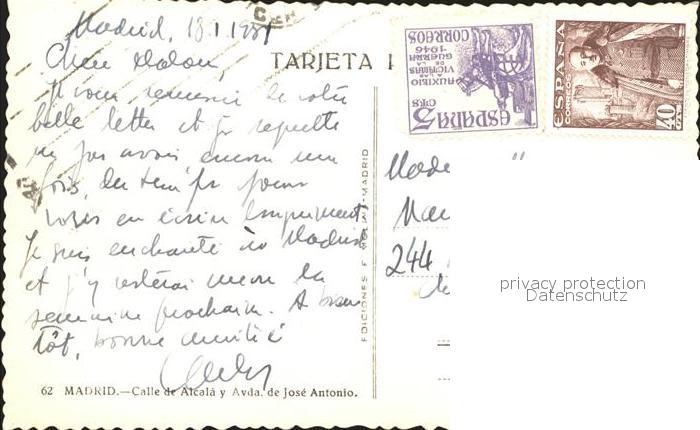 Madrid, 18.1.1951
TARJETA P
Je vous remercie de votre
belle lettre et je regrette
ne pas avoir encore une
fois, du temps pour
vous en écrire longuement,
Je suis enchanté de Madrid
et j'y resterai encore la
semaine prochaine. A bien
tôt, bonne amitié
62 MADRID.—Calle de Alcalá y Avda. de José Antonio.
EDICIONES F. MADRID
CORREOS
1946
AUXILIO
A LAS
VICTIMAS
DE LA
GUERRA
ESPAÑA
5
CTS
ESPAÑA
CORREOS
40
CTS
Made "
244
privacy protection
Datenschutz